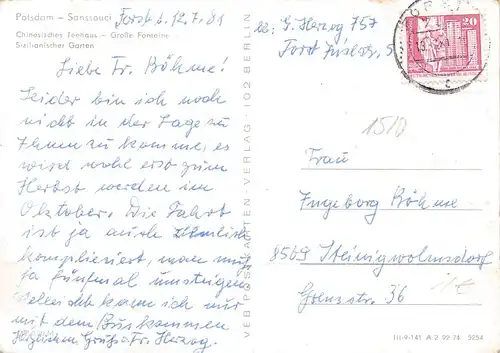 Potsdam – Sanssouci
Chinesisches Teehaus – Große Fontäne
Sizilianischer Garten
Forst, 12.7.81
Liebe Fr. Böhme!
Leider bin ich noch
nicht in der Lage zu
Ihnen zu komme, es
wird wohl erst zum
Herbst werden im
Oktober. Die Fahrt
ist ja auch ziemlich
kompliziert, man muß
ja fünfmal umsteigen
Vielleicht kann ich nur
mit dem Bus kommen
Herzlichen Gruß Fr. Herzog.
VEB POSTKARTEN-VERLAG · 102 BERLIN
G. Herzog 757
Forst 5
20
1510
Frau
Ingeborg Böhme
8509 Steinigtwolmsdorf
Grenzstr. 36
1€
III-9-141 A 2 92 74 5254